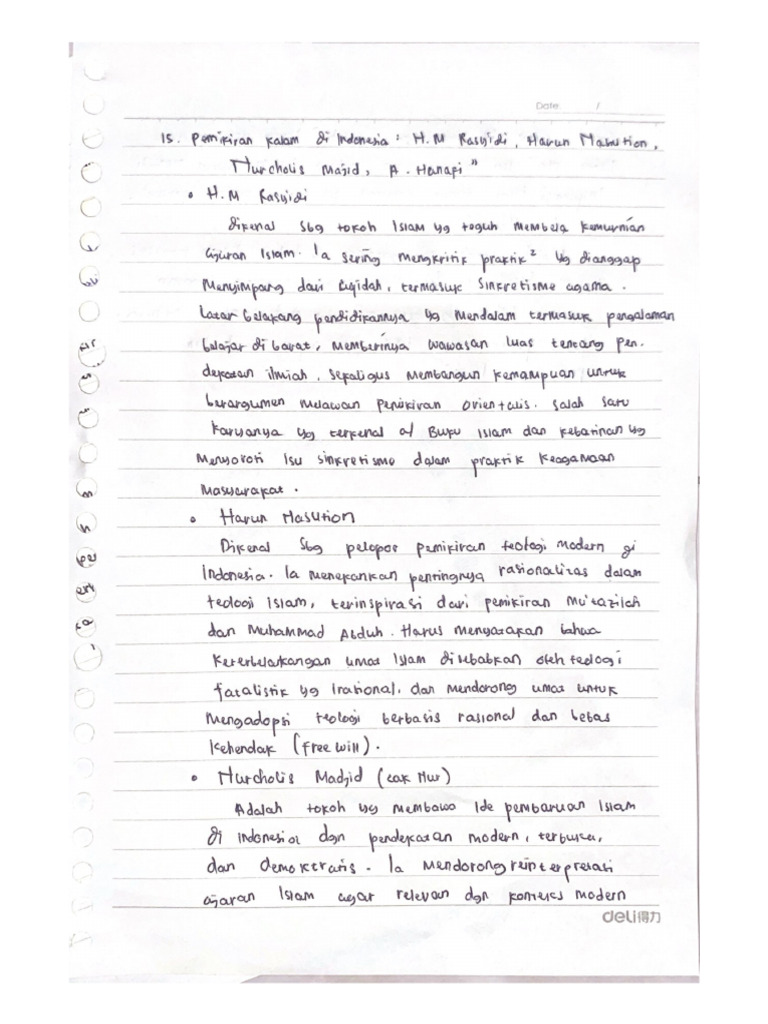 Date: /
15. Pemikiran kalam di Indonesia: H.M Rasyidi, Harun Nasution,
Nurcholis Majid, A. Hanafi"
• H.M Rasyidi
Dikenal sbg tokoh Islam yg teguh membela kemurnian
ajaran Islam. Ia sering mengkritik praktik² yg dianggap
Menyimpang dari Aqidah, termasuk Sinkretisme agama.
Latar belakang pendidikannya yg Mendalam termasuk pengalaman
belajar di barat, Memberinya wawasan luas tentang pen.
dekatan ilmiah, sekaligus Membangun kemampuan untuk
berargumen melawan pemikiran orientalis. Salah satu
Karyanya yg terkenal a/ Buku Islam dan kebatinan yg
Menyoroti Isu sinkretisme dalam praktik keagamaan
Masyarakat.
• Harun Nasution
Dikenal sbg pelopor pemikiran teologi modern di
Indonesia. Ia menekankan pentingnya rasionalitas dalam
teologi Islam, terinspirasi dari pemikiran Mu'tazilah
dan Muhammad Abduh. Harus menyatakan bahwa
Keterbelakangan umat Islam disebabkan oleh teologi
fatalistik yg Irational, dan Mendorong umat untuk
Mengadopsi teologi berbasis rasional dan bebas
Kehendak (free will).
• Nurcholis Madjid (cak Nur)
Adalah tokoh yg membawa Ide pembaruan Islam
di Indonesia dgn pendekatan modern, terbuka,
dan demokratis. Ia Mendorong reinterpretasi
ajaran Islam agar relevan dgn konteks modern
deli得力